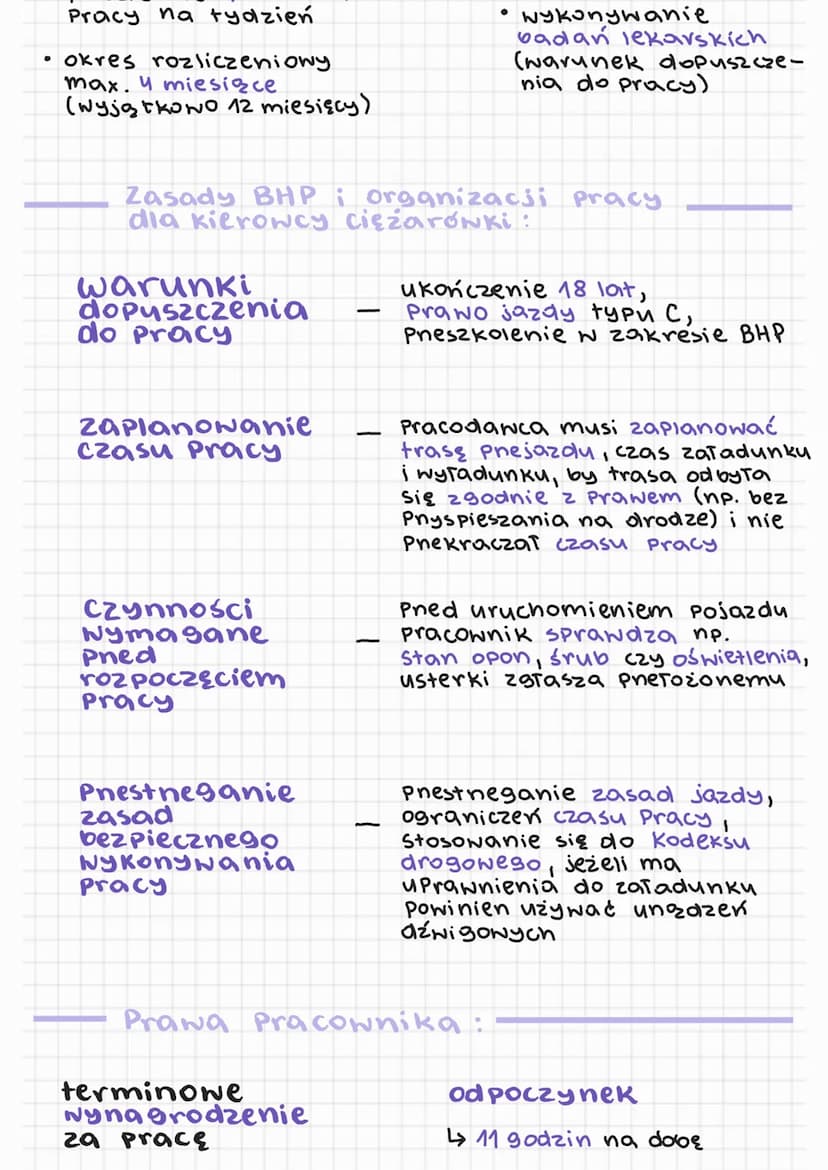 pracy na tydzień
• okres rozliczeniowy
max. 4 miesiące
(wyjątkowo 12 miesięcy)
• wykonywanie
badań lekarskich
(warunek dopuszcze-
nia do pracy)
Zasady BHP i organizacji pracy
dla kierowcy ciężarówki:
warunki
dopuszczenia
do pracy
— ukończenie 18 lat,
prawo jazdy typu C,
przeszkolenie w zakresie BHP
zaplanowanie
czasu pracy
— pracodawca musi zaplanować
trasę przejazdu, czas załadunku
i wyładunku, by trasa odbyła
się zgodnie z prawem (np. bez
przyspieszania na drodze) i nie
przekraczał czasu pracy
czynności
wymagane
przed
rozpoczęciem
pracy
— przed uruchomieniem pojazdu
pracownik sprawdza np.
stan opon, śrub czy oświetlenia,
usterki zgłasza przełożonemu
przestrzeganie
zasad
bezpiecznego
wykonywania
pracy
— przestrzeganie zasad jazdy,
ograniczeń czasu pracy,
stosowanie się do kodeksu
drogowego, jeżeli ma
uprawnienia do załadunku
powinien używać urządzeń
dźwigowych
Prawa pracownika:
terminowe
wynagrodzenie
za pracę
odpoczynek
↳ 11 godzin na dobę